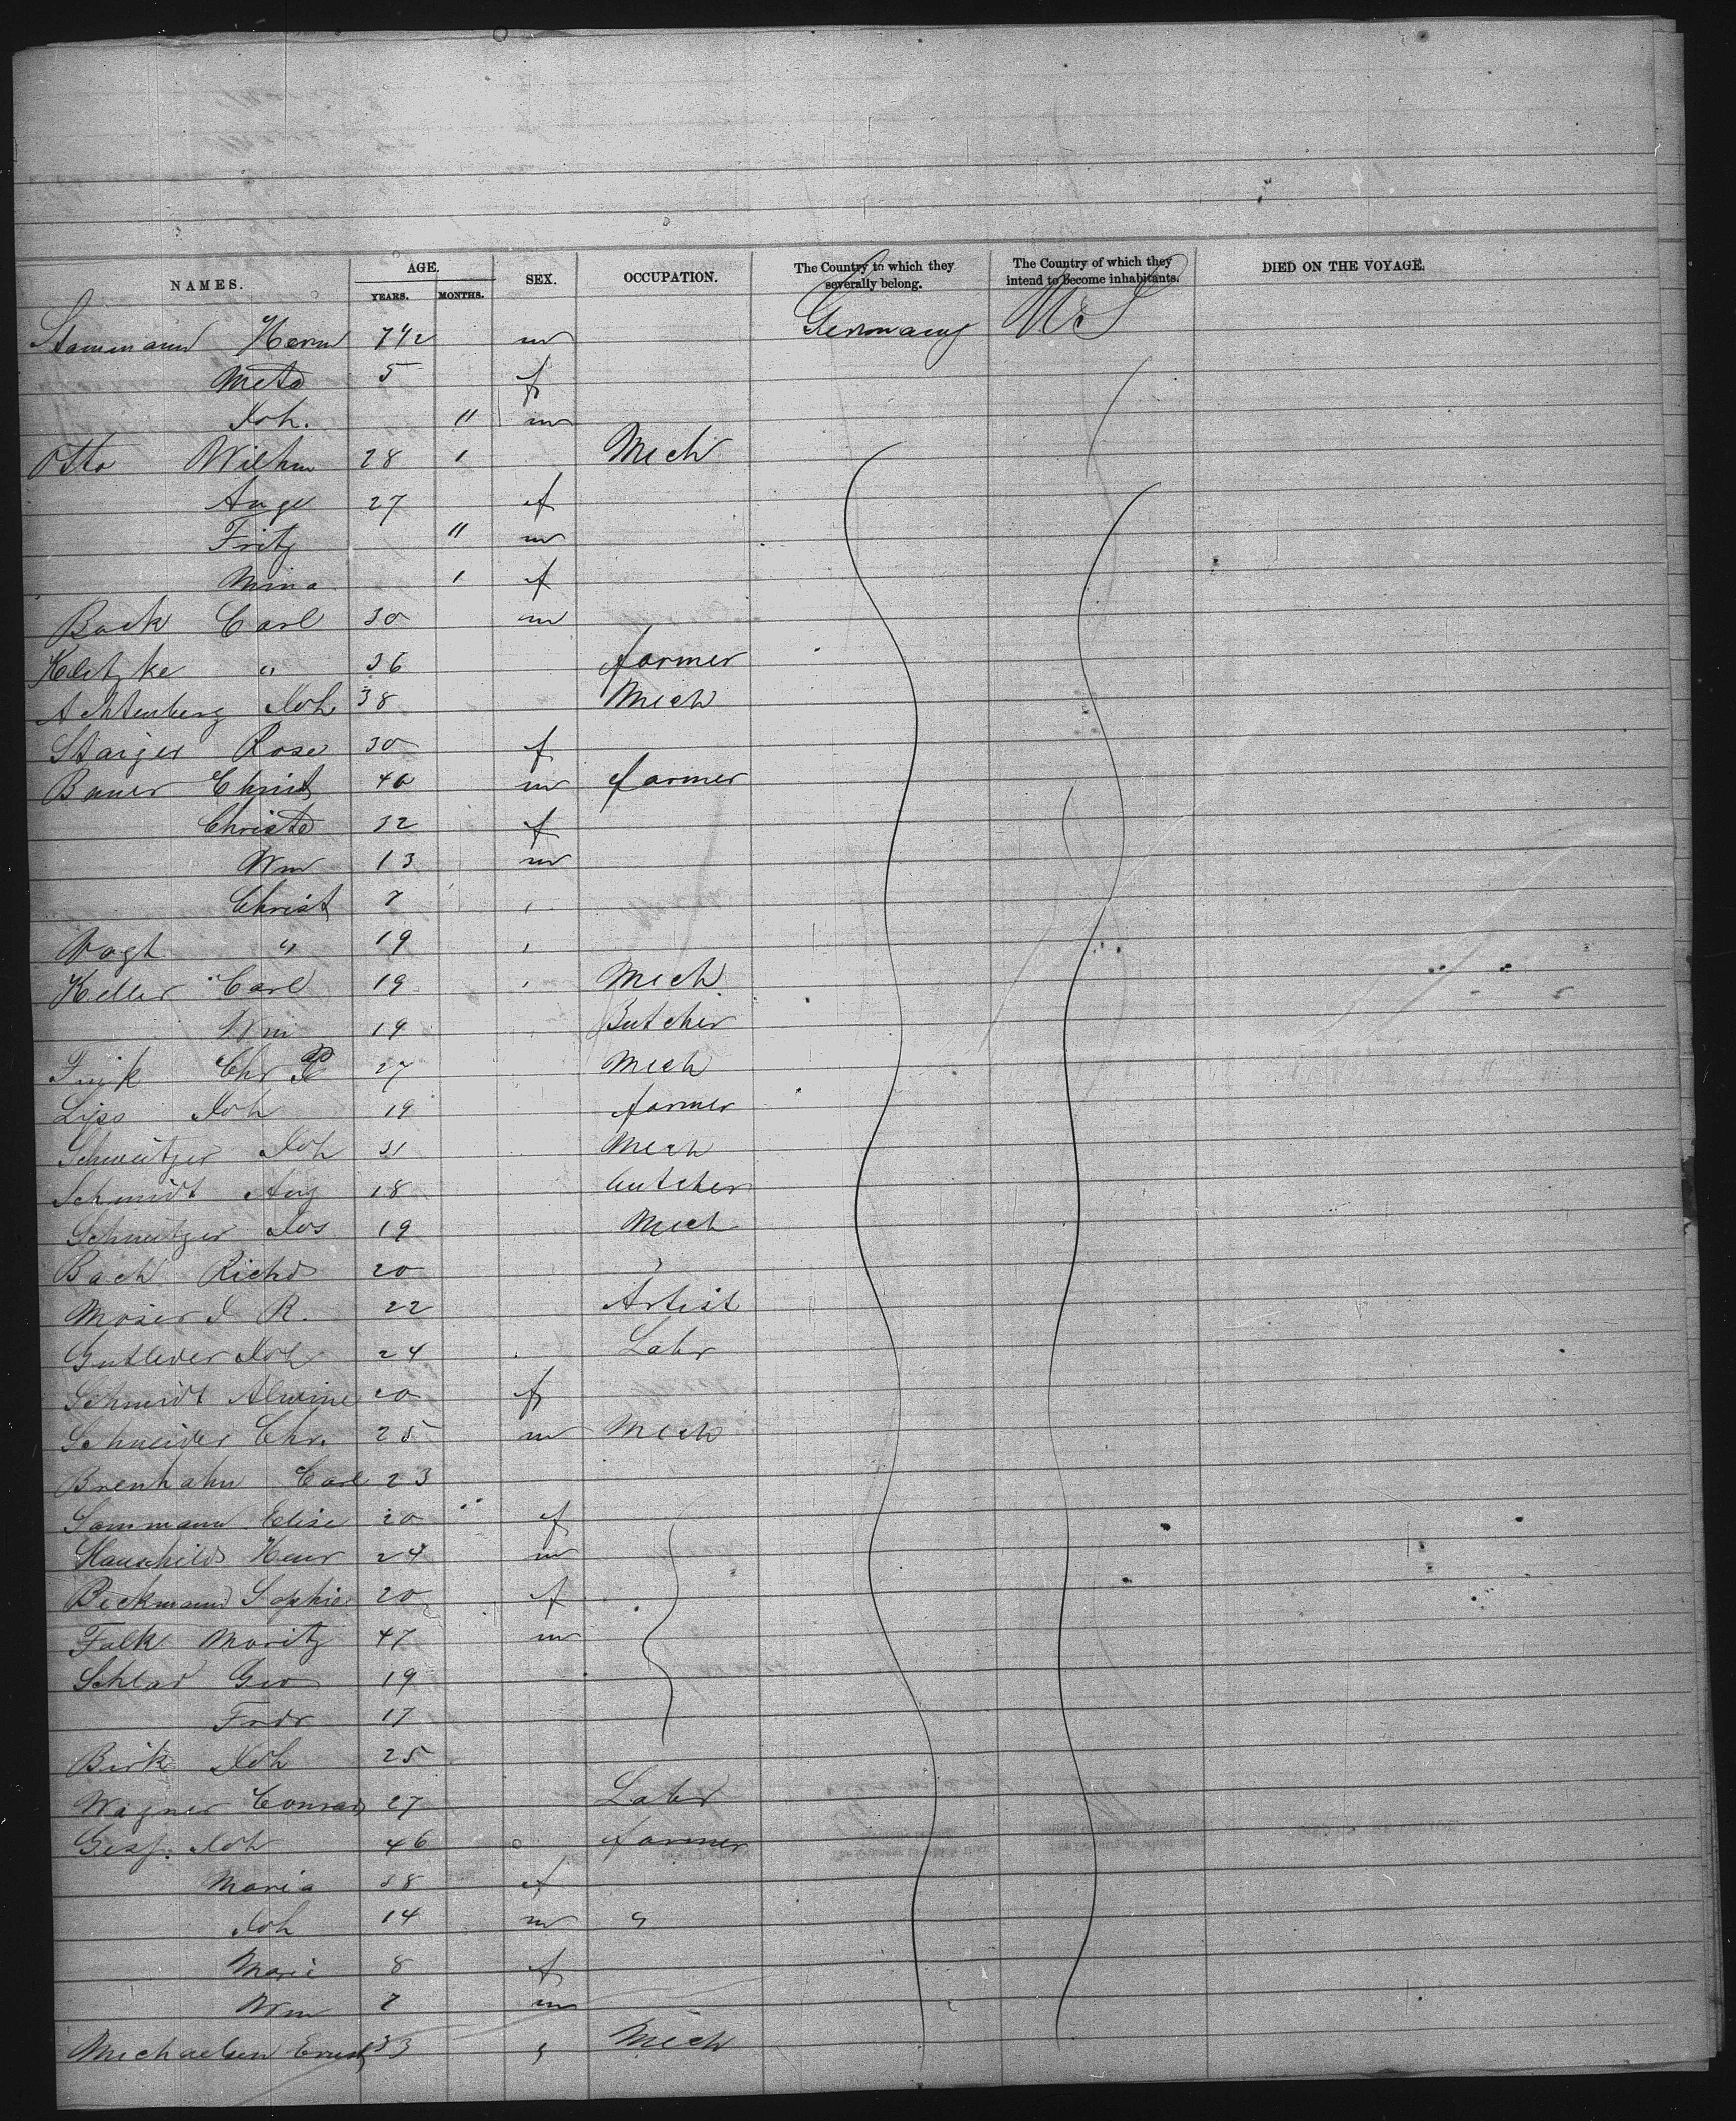 NAMES. AGE. YEARS. MONTHS. SEX. OCCUPATION. The Country to which they severally belong. The Country of which they intend to become inhabitants. DIED ON THE VOYAGE.
Stammann Herm 7 1/2 m Germany US
Meta 5 f
Joh. 11 m
Otto Wilhm 28 1 Mech
Auge 27 f
Fritz 11 m
Mina 1 f
Bock Carl 30 m
Kletzke " 36 farmer
Achtenberg Joh 38 Mech
Staiger Rose 30 f
Bauer Christ 40 m farmer
Christa 32 f
Wm 13 m
Christ 7 ,
Vogt " 19 ,
Keller Carl 19 , Mech
Wm 19 Butcher
Chr 27 Mech
Joh 19 farmer
Schweitzer Joh 31 Mech
Schmidt Aug 18 butcher
Schweitzer Jos 19 Mech
Bach Richd 20 ,
Moser J R. 22 Artist
Gutleder Joh 24 Labr
Schmidt Alwine 20 f
Schneider Chr. 25 m Mech
Carl 23
Sammann Elise 20 f
Hauschild Henr 24 m
Beckmann Sophie 20 f
Falk Moritz 47 m
Schlad Geo 19
Fredr 17
Birk Joh 25
Wagner Conrad 27 Labr
Joh 46 farmer
Maria 38 f
Joh 14 m "
Marie 8 f
Wm 7 m
Michaelsen Ernst 33 , Mech